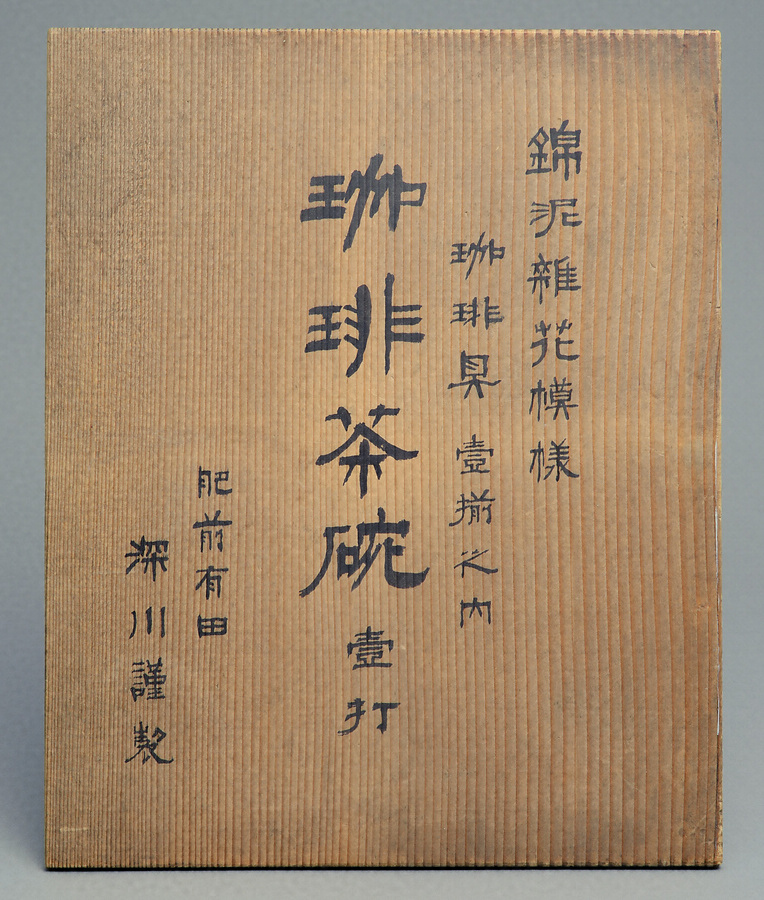 錦泥雜花模樣
珈琲具 壹揃之内
珈琲茶碗 壹打
肥前有田
深川謹製